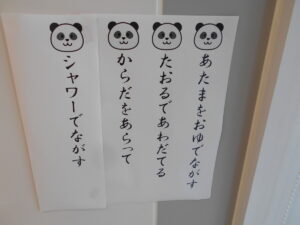 あたまをおゆでながす
たおるであわだてる
からだをあらって
シャワーでながす